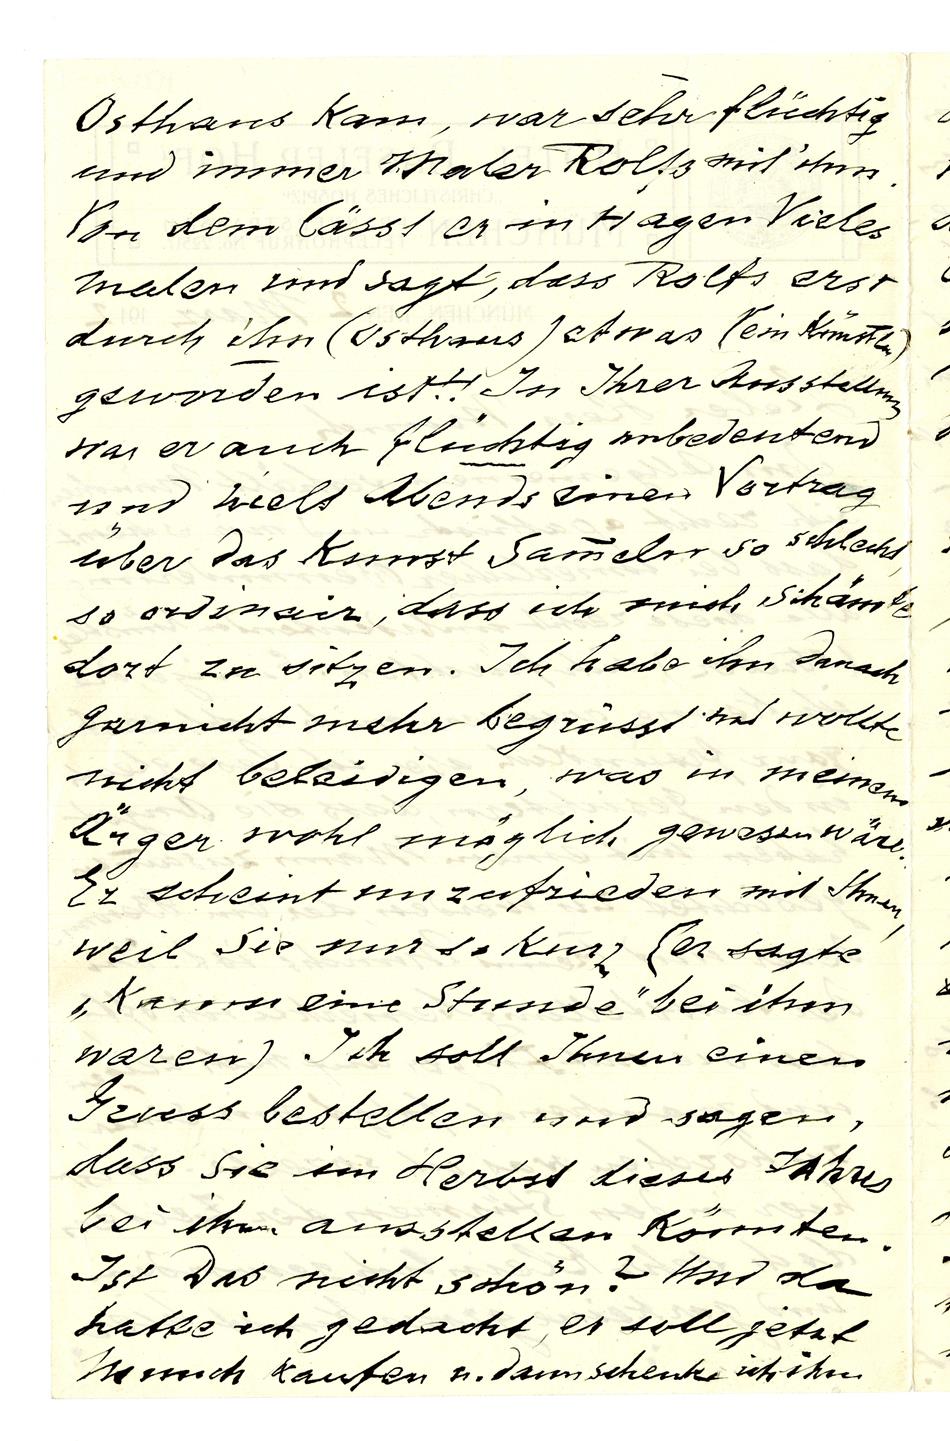 Osthaus kam, war sehr flüchtig
und immer Maler Rolfs mit ihm.
Von dem lässt er in Hagen Vieles
malen und sagt, dass Rolfs erst
durch ihn (Osthaus) etwas (ein Künstler)
geworden ist!! In Ihrer Ausstellung
war er auch flüchtig unbedeutend
und hielt Abends einen Vortrag
über das Kunst Sam̄eln so schlecht,
so ordinair, dass ich mich schämte
dort zu sitzen. Ich habe ihn danach
garnicht mehr begrüsst und wollte
nicht beleidigen, was in meinem
Ärger wohl möglich gewesen wäre.
Er scheint unzufrieden mit Ihnen,
weil Sie nur so kurz (er sagte
„Kaum eine Stunde" bei ihm
waren) Ich soll Ihnen einen
Gruss bestellen und sagen,
dass Sie im Herbst dieses Jahres
bei ihm ausstellen könnten.
Ist Das nicht schön? Und da
hatte ich gedacht, er soll jetzt
kaufen u. dann schenke ich ihm